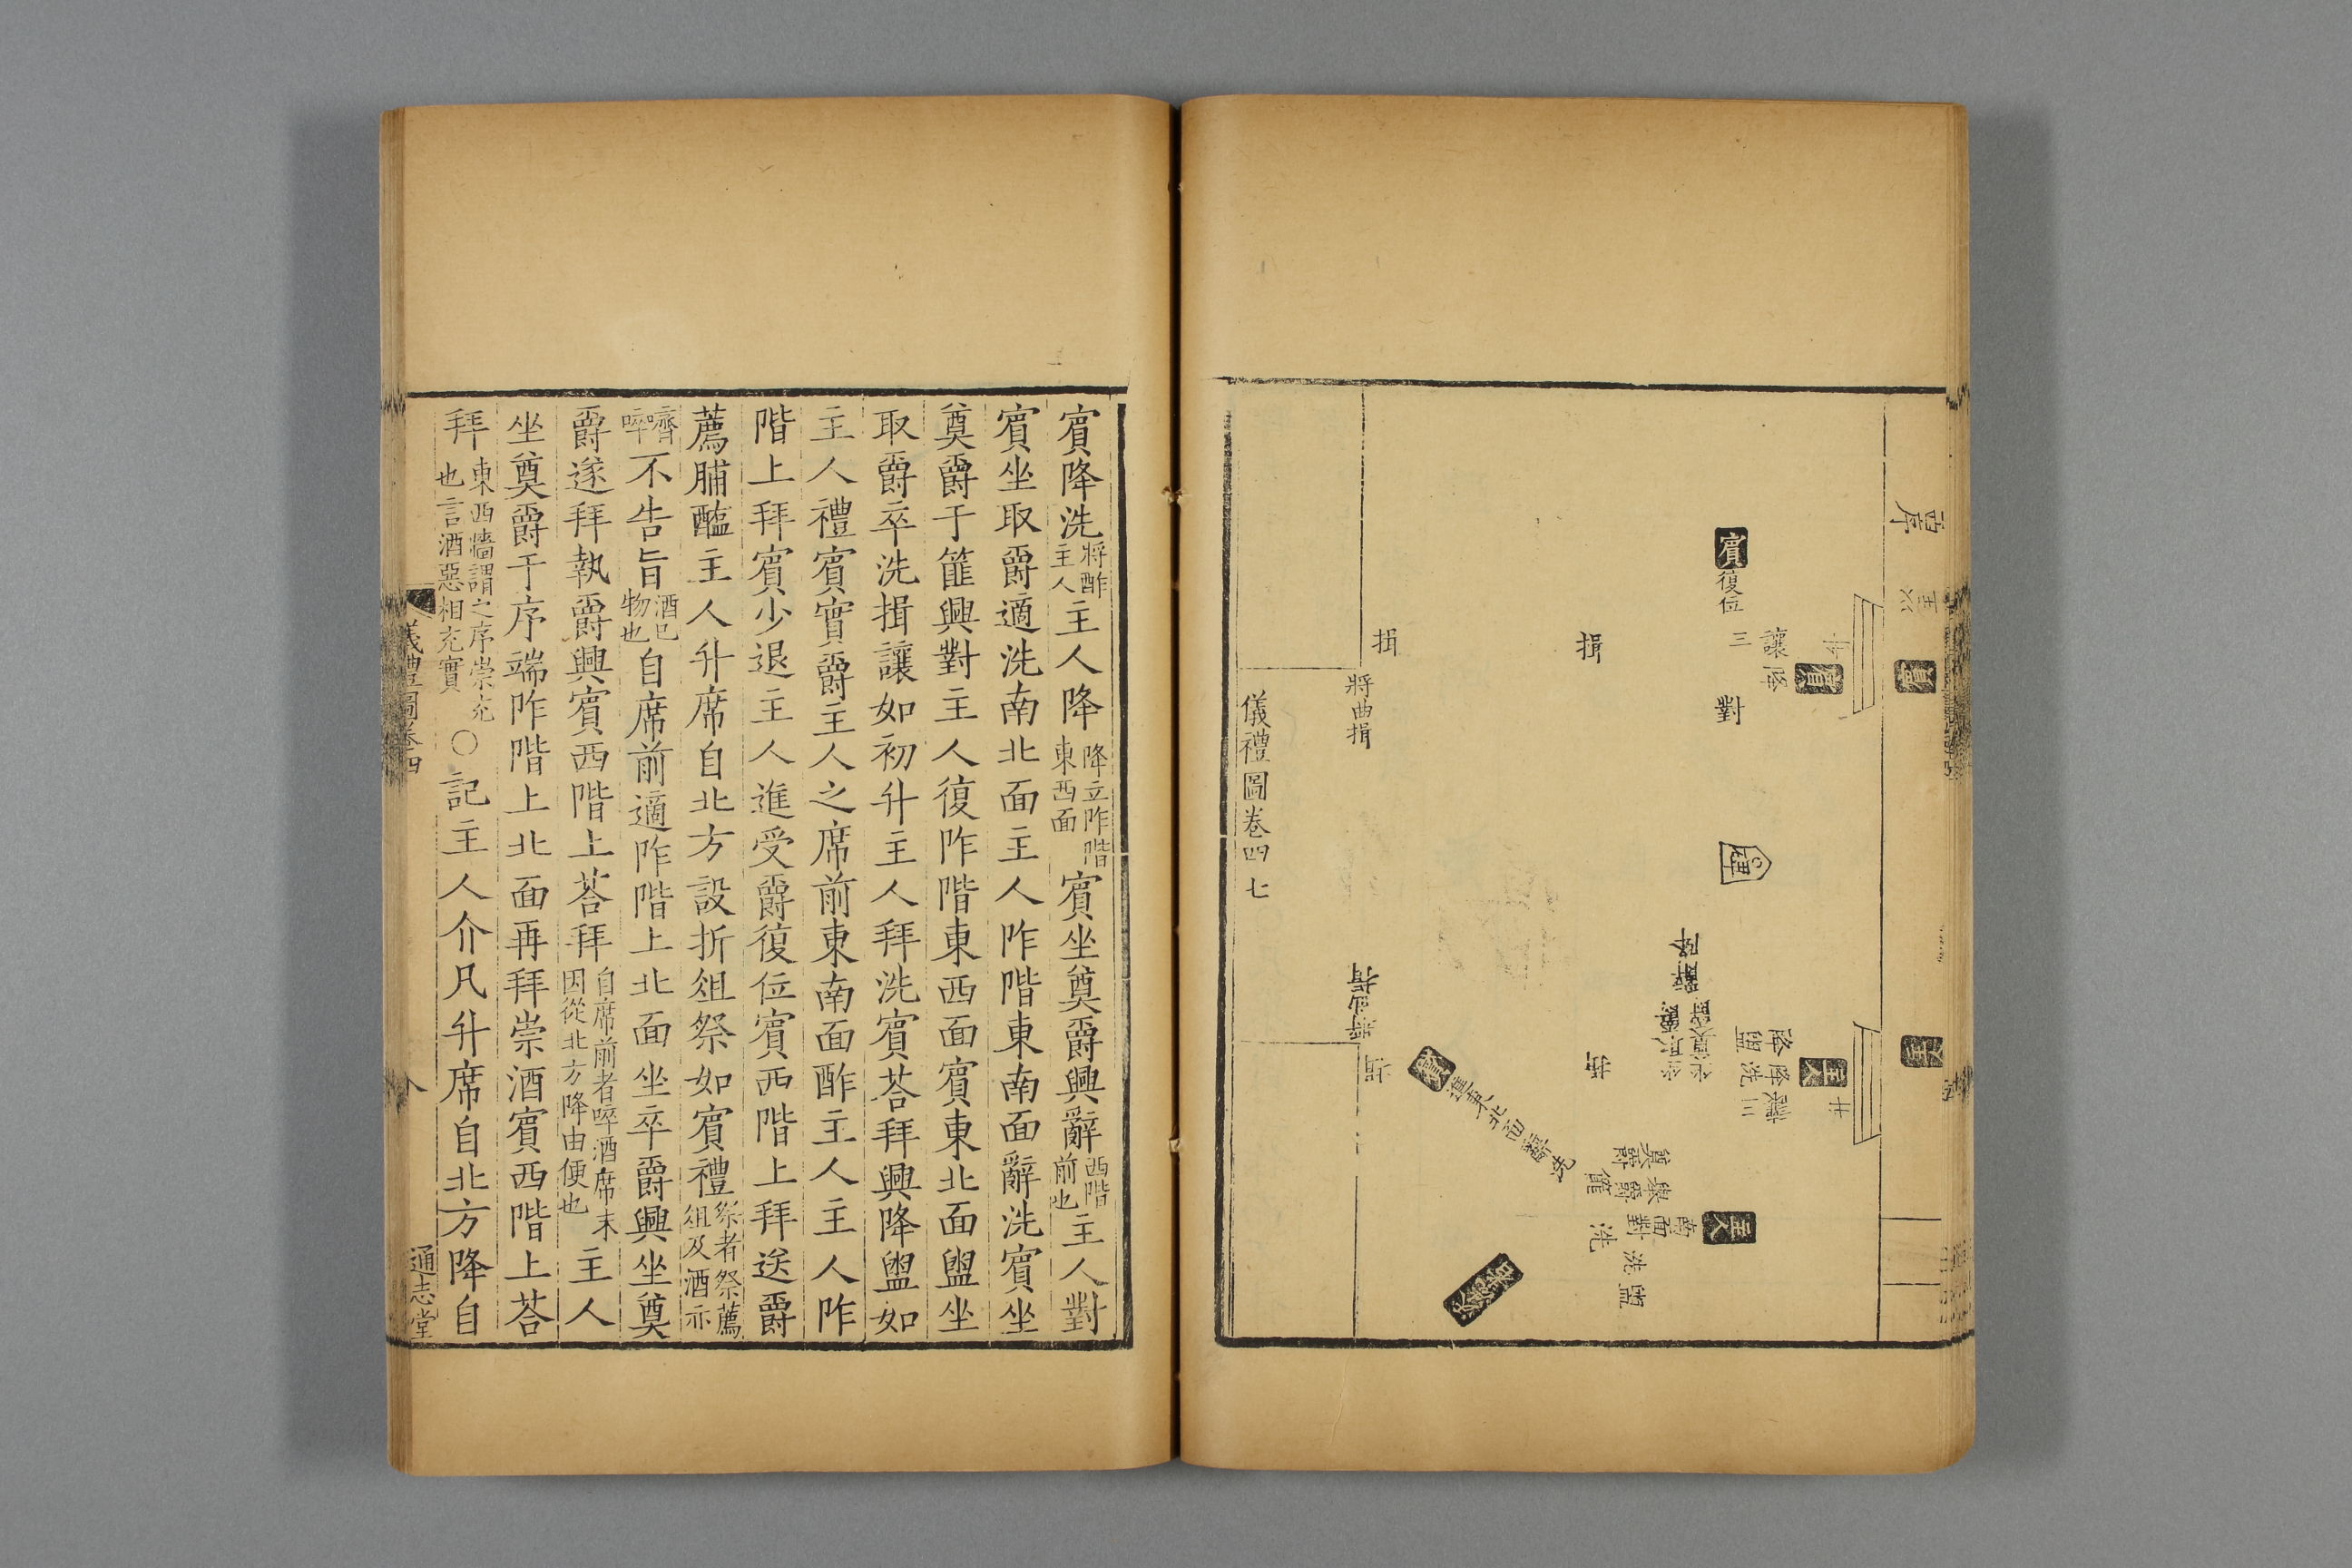 序
賓
主人
賓
復位
讓
三
降
賓
升
揖
揖
對
將曲揖
碑
降
辭
主人
升
降盥
降洗
讓三
坐奠爵
揖
將曲揖
揖
賓
進東北面辭洗
奠爵
篚
主人
南面對
洗
盥洗
儀禮圖卷四 七
賓降洗將酢主人主人降降立阼階東西面賓坐奠爵興辭西階前也主人對
賓坐取爵適洗南北面主人阼階東南面辭洗賓坐
奠爵于篚興對主人復阼階東西面賓東北面盥坐
取爵卒洗揖讓如初升主人拜洗賓荅拜興降盥如
主人禮賓實爵主人之席前東南面酢主人主人阼
階上拜賓少退主人進受爵復位賓西階上拜送爵
薦脯醢主人升席自北方設折俎祭如賓禮祭者祭薦俎及酒亦
嚌啐不告旨酒已物也自席前適阼階上北面坐卒爵興坐奠
爵遂拜執爵興賓西階上荅拜自席前者啐酒席末因從北方降由便也主人
坐奠爵于序端阼階上北面再拜崇酒賓西階上荅
拜東西牆謂之序崇充也言酒惡相充實〇記主人介凡升席自北方降自
儀禮圖卷四
八
通志堂